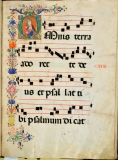 Omnis terra
ado ret te de
us et psal lat ti
bi psalmum di cat